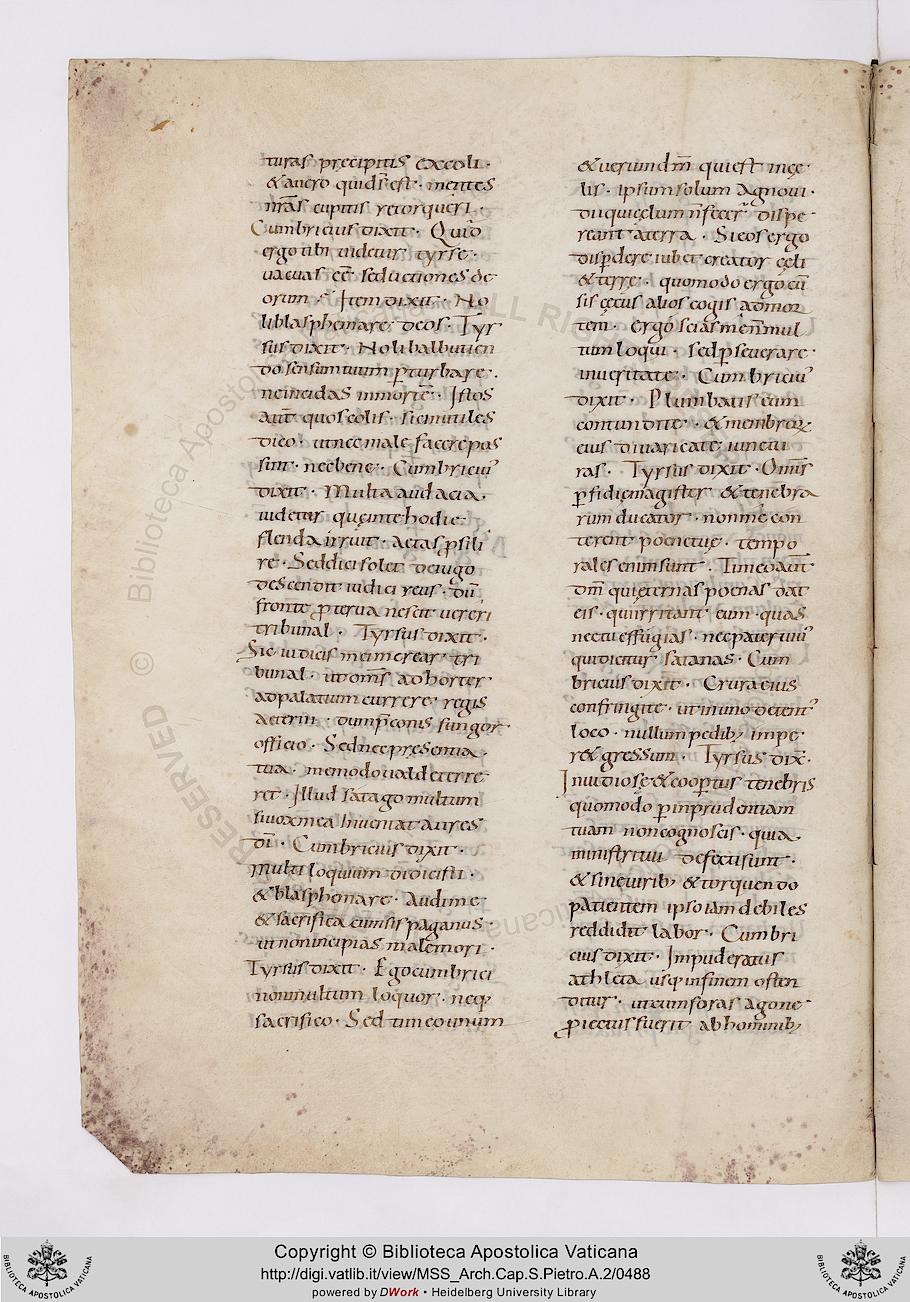 turas precipitis excoli·
& auero quid si est· mentes
nr̄as cupitis retorqueri·
Cumbricius dixit· Quid
ergo tibi uidetur tyrse·
uacuas eē seductiones de
orum· Item dixit· No
li blasphemare deos· Tyr
sus dixit· Noli balbutien
do sensum tuum p̱turbare·
ne incidas in mortē· Istos
aut̄ quos colis· sic inutiles
dico· ut nec male facere pos
sint· nec bene· Cumbriciuˀ
dixit· Multa audacia·
uidetur quę in te hodie
flenda irruit· actas ꝓsili
re· Sed dici solet de iugo
descendit iudici reus· dū
fronte ꝓterua nescit uereri
tribunal· Tyrsus dixit·
Sic iudicis mei mercar tri
bunal· ut om̄s adhorter
ad palatium currere regis
aeterni· dum p̄conis fungor
officio· Sed nec pręsentia
tua· me modo ualde terre
ret· Illud satago multum
si uox mea inueniat aures
dī· Cumbricius dixit·
Multiloquium didicisti·
& blasphemare· Audi me
& sacrifica cum sis paganus·
ut non incipias male mori·
Tyrsus dixit· Ego cumbrici
non multum loquor· neq;
sacrifico· Sed timeo unum
& uerum dm̄ qui est in cę
lis· ipsum solum agnoui·
Dii qui cęlum n̄ fecer̄ dispe
reant a terra· Si eos ergo
disp̱dere iubet creator cęli
& terrę· quomodo ergo cū
sis cęcus alios cogis ad mor
tem· ergo scias me n̄ mul
tum loqui· sed p̱seuerare
in ueritate· Cumbriciuˀ
dixit· Plumbatis eum
contundite· & membroꝝ
eius diuaricate iunctu
ras· Tyrsus dixit· Om̄is
p̱fidię magister & tenebra
rum ducator· non me con
terent poenę tuę· tempo
rales enim sunt· Timeo aut̄
dm̄ qui ęternas poenas dat
eis· qui irritant eum· quas
nec tu effugias· nec pater tuuˀ
qui dicitur satanas· Cum
bricius dixit· Crura eius
confringite· ut in uno detentˀ
loco· nullum pedib; impe
r& gressum· Tyrsus dix̄·
Inuidiose & coop̱tus tenebris
quomodo p̱ inprudentiam
tuam non cognoscis· quia
ministri tui defecti sunt·
& sine uirib; & torquendo
patientem ipso iam debiles
reddidit labor· Cumbri
cius dixit· Impuderatus
athleta usq; in finem osten
ditur· ut cum foras agone
ꝓiectus fuerit ab hominib;
Copyright © Biblioteca Apostolica Vaticana
http://digi.vatlib.it/view/MSS_Arch.Cap.S.Pietro.A.2/0488
powered by DWork • Heidelberg University Library